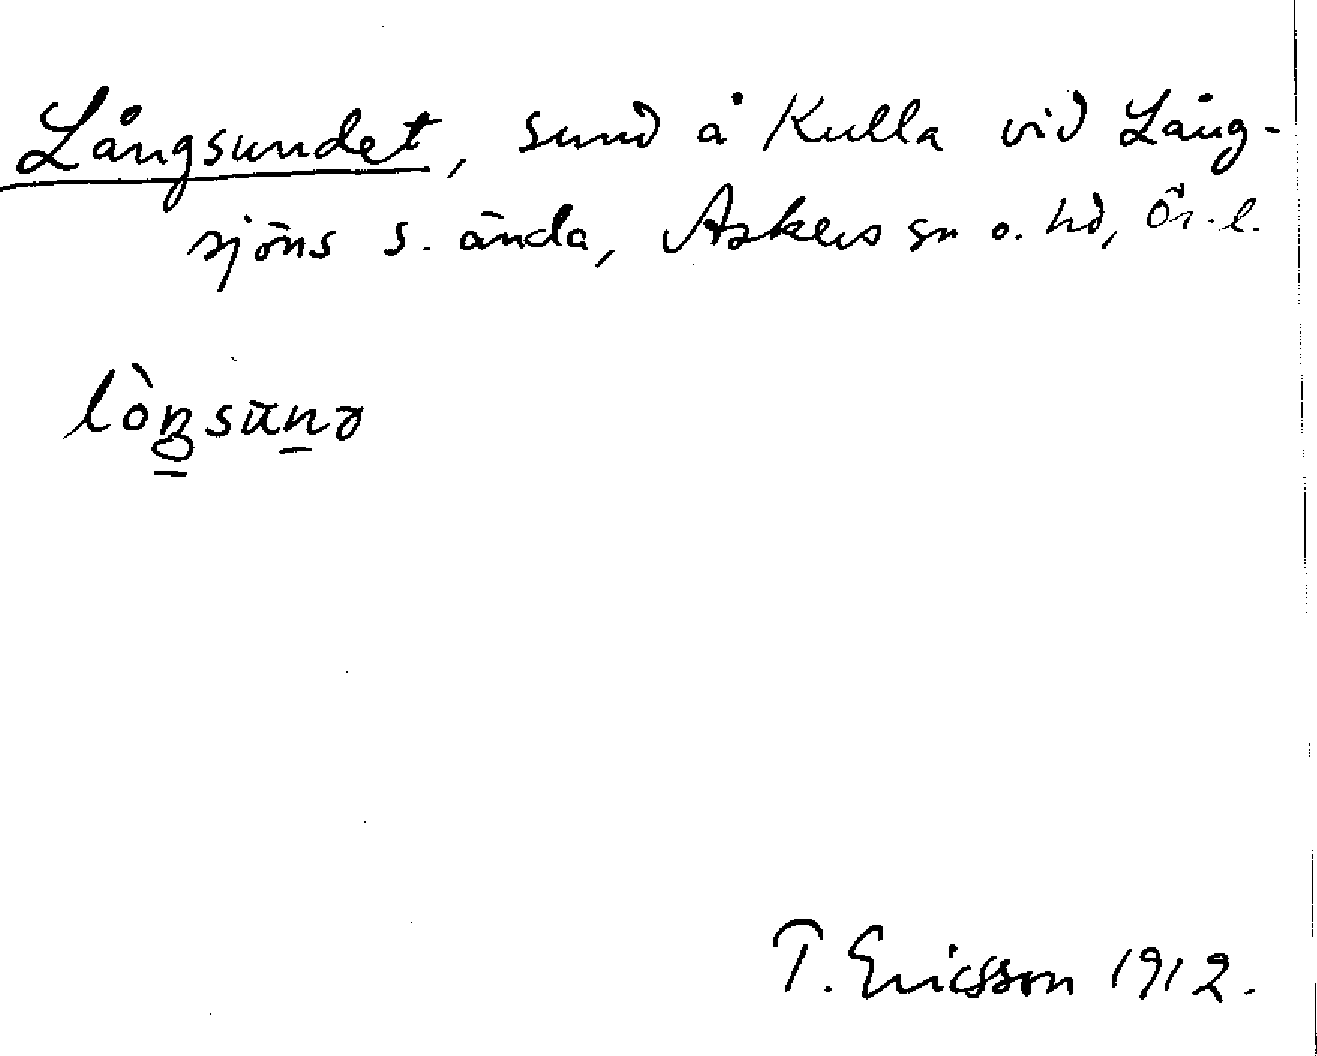 Långsundet, sund å Kulla vid Lång-
sjöns s. ända, Askers sn o. hd, Ör. l.
lòŋsūnə
T. Ericsson 1912.